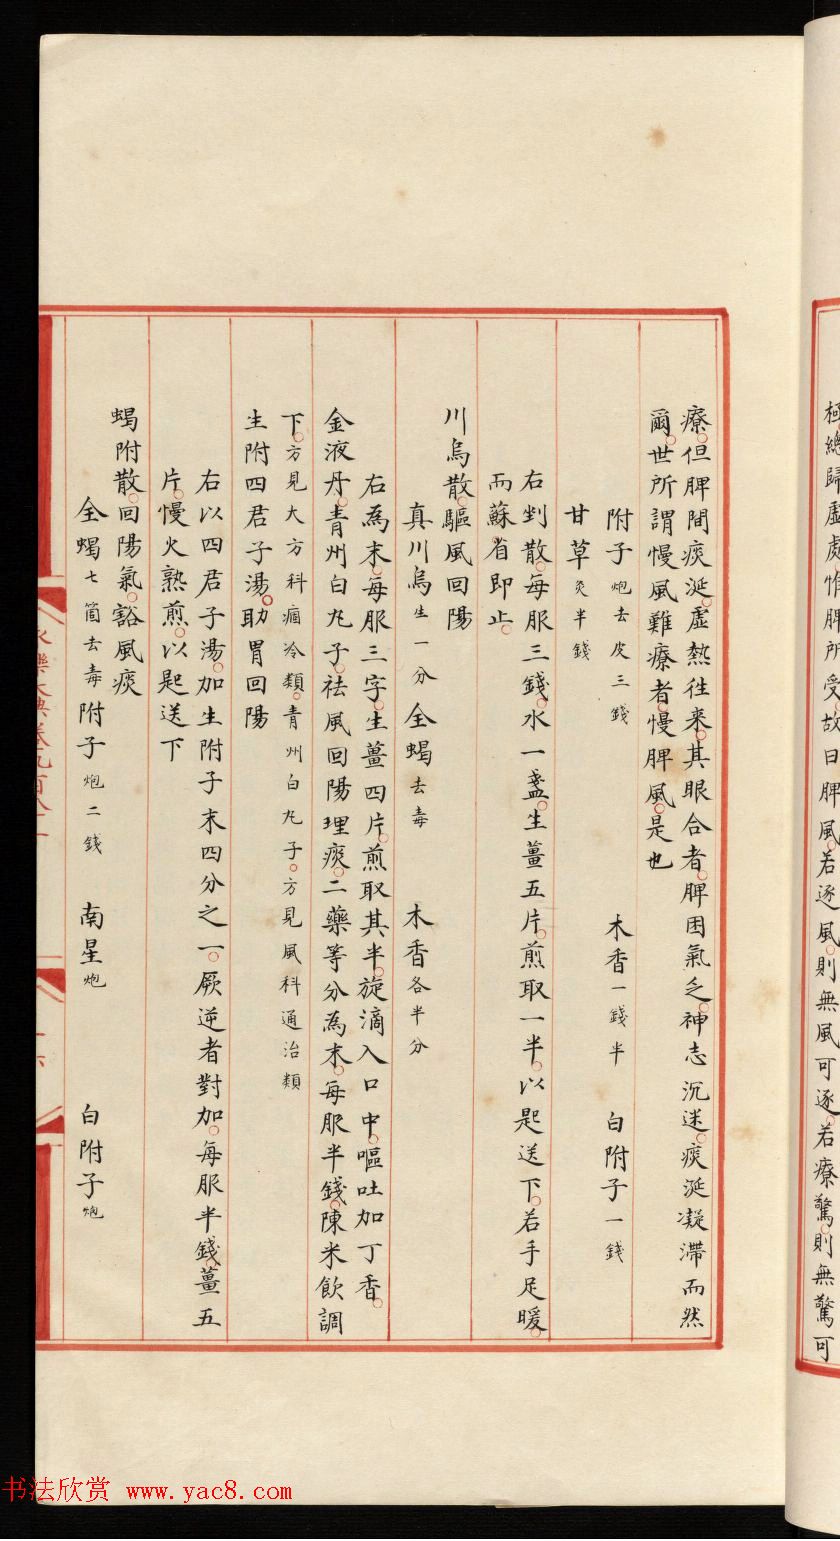 極總歸虛處惟脾所受故曰脾風若逐風則無風可逐若療驚則無驚可
療但脾間痰涎虛熱往來其眼合者脾困氣乏神志沉迷痰涎凝滯而然
爾世所謂慢風難療者慢脾風是也
附子炮去皮三錢 木香一錢半 白附子一錢
甘草炙半錢
右剉散每服三錢水一盞生薑五片煎取一半以匙送下若手足暖
而蘇省即止
川烏散驅風回陽
真川烏生一分 全蝎去毒 木香各半分
右為末每服三字生薑四片煎取其半旋滴入口中嘔吐加丁香
金液丹青州白丸子祛風回陽理痰二藥等分為末每服半錢陳米飲調
下方見大方科痼冷類青州白丸子方見風科通治類
生附四君子湯助胃回陽
右以四君子湯加生附子末四分之一厥逆者對加每服半錢薑五
片慢火熟煎以匙送下
蝎附散回陽氣豁風痰
全蝎七箇去毒 附子炮二錢 南星炮 白附子炮
永樂大典卷九百八十一
书法欣赏 www.yac8.com